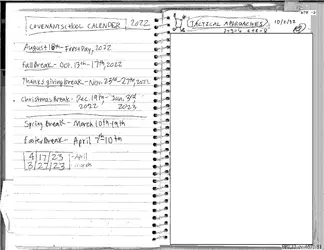 COVENANT SCHOOL CALENDER 2022
August 18th - First Day, 2022
Fall Break - Oct. 13th - 17th, 2022
Thanksgiving break - Nov. 23rd - 27th, 2022
Christmas Break - Dec. 19th - Jan. 3rd
2022 2023
Spring Break - March 10th - 19th
Easter Break - April 7th 10th
4/17/23 - April
3/27/23 - march
TACTICAL APPROACHES